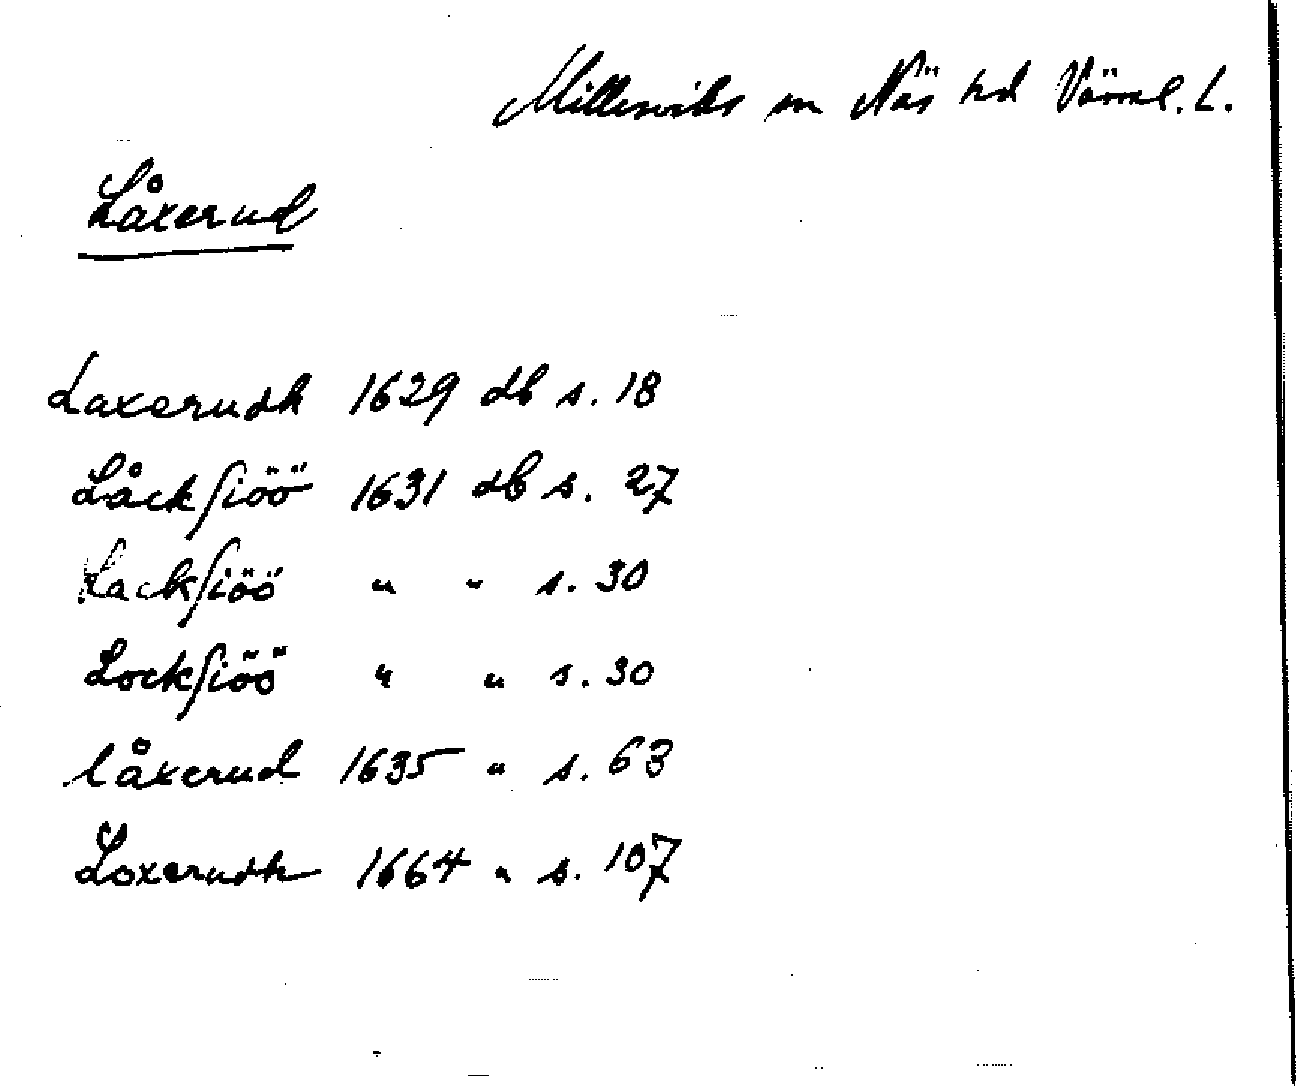 Millesviks sn Näs hd Värml. L.
Låxerud
Laxerudh 1629 db s. 18
Låcksiöö 1631 db s. 27
Lacksiöö " " s. 30
Locksiöö " " s. 30
låxerud 1635 " s. 63
Loxerudh 1664 " s. 107